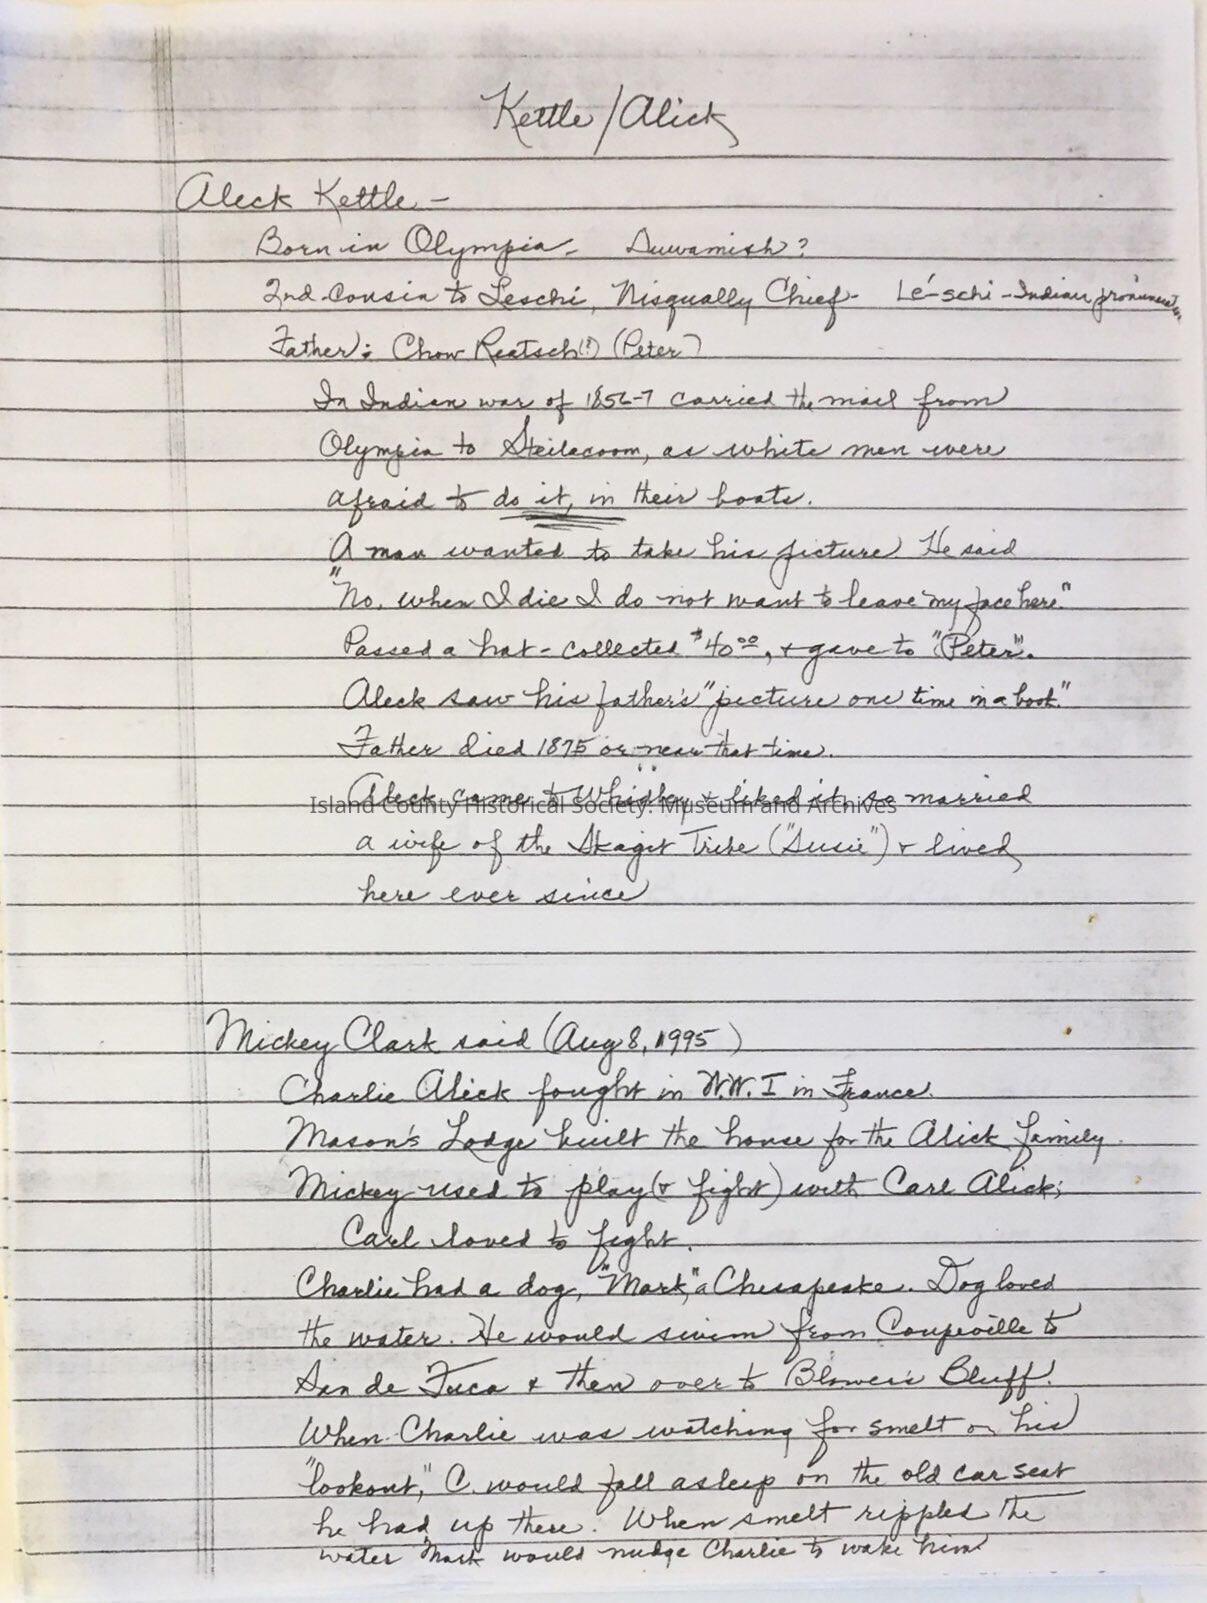 Kettle/Alick
Aleck Kettle -
Born in Olympia - Duwamish?
2nd cousin to Leschi, Nisqually Chief - Lé-schi - Indian pronunciation
Father: Chow Reatsch(?) (Peter)
In Indian war of 1856-7 carried the mail from
Olympia to Steilacoom, as white men were
afraid to do it, in their boats.
A man wanted to take his picture. He said
"No, when I die I do not want to leave my face here."
Passed a hat - collected $40.00, + gave to "Peter".
Aleck saw his father's "picture one time in a book."
Father died 1875 or near that time.
Aleck came to Whidbey + liked it so married
Island County Historical Society: Museum and Archives
a wife of the Skagit Tribe ("Susie") + lived
here ever since
Mickey Clark said (Aug 8, 1995)
Charlie Alick fought in W.W. I in France.
Mason's Lodge built the house for the Alick family.
Mickey used to play (+ fight) with Carl Alick;
Carl loved to fight.
Charlie had a dog, "Mark," a Chesapeake. Dog loved
the water. He would swim from Coupeville to
San de Fuca + then over to Blower's Bluff.
When Charlie was watching for smelt on his
"lookout," C. would fall asleep on the old car seat
he had up there. When smelt rippled the
water Mark would nudge Charlie to wake him